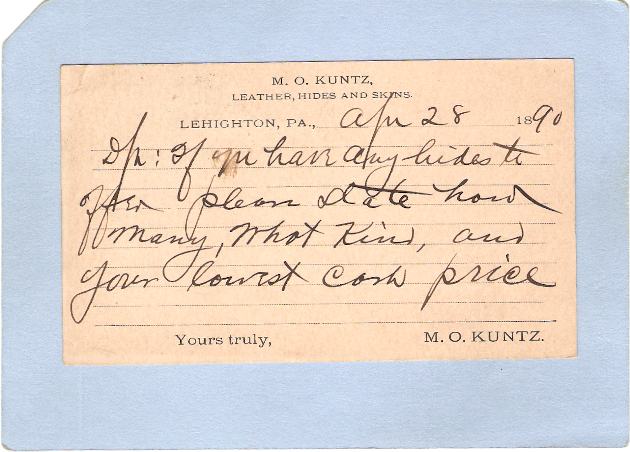 M. O. KUNTZ,
LEATHER, HIDES AND SKINS.
LEHIGHTON, PA., Apr 28 1890
D/Sr: If you have any hides to
offer please state how
many, What Kind, and
your lowest cash price
Yours truly, M. O. KUNTZ.